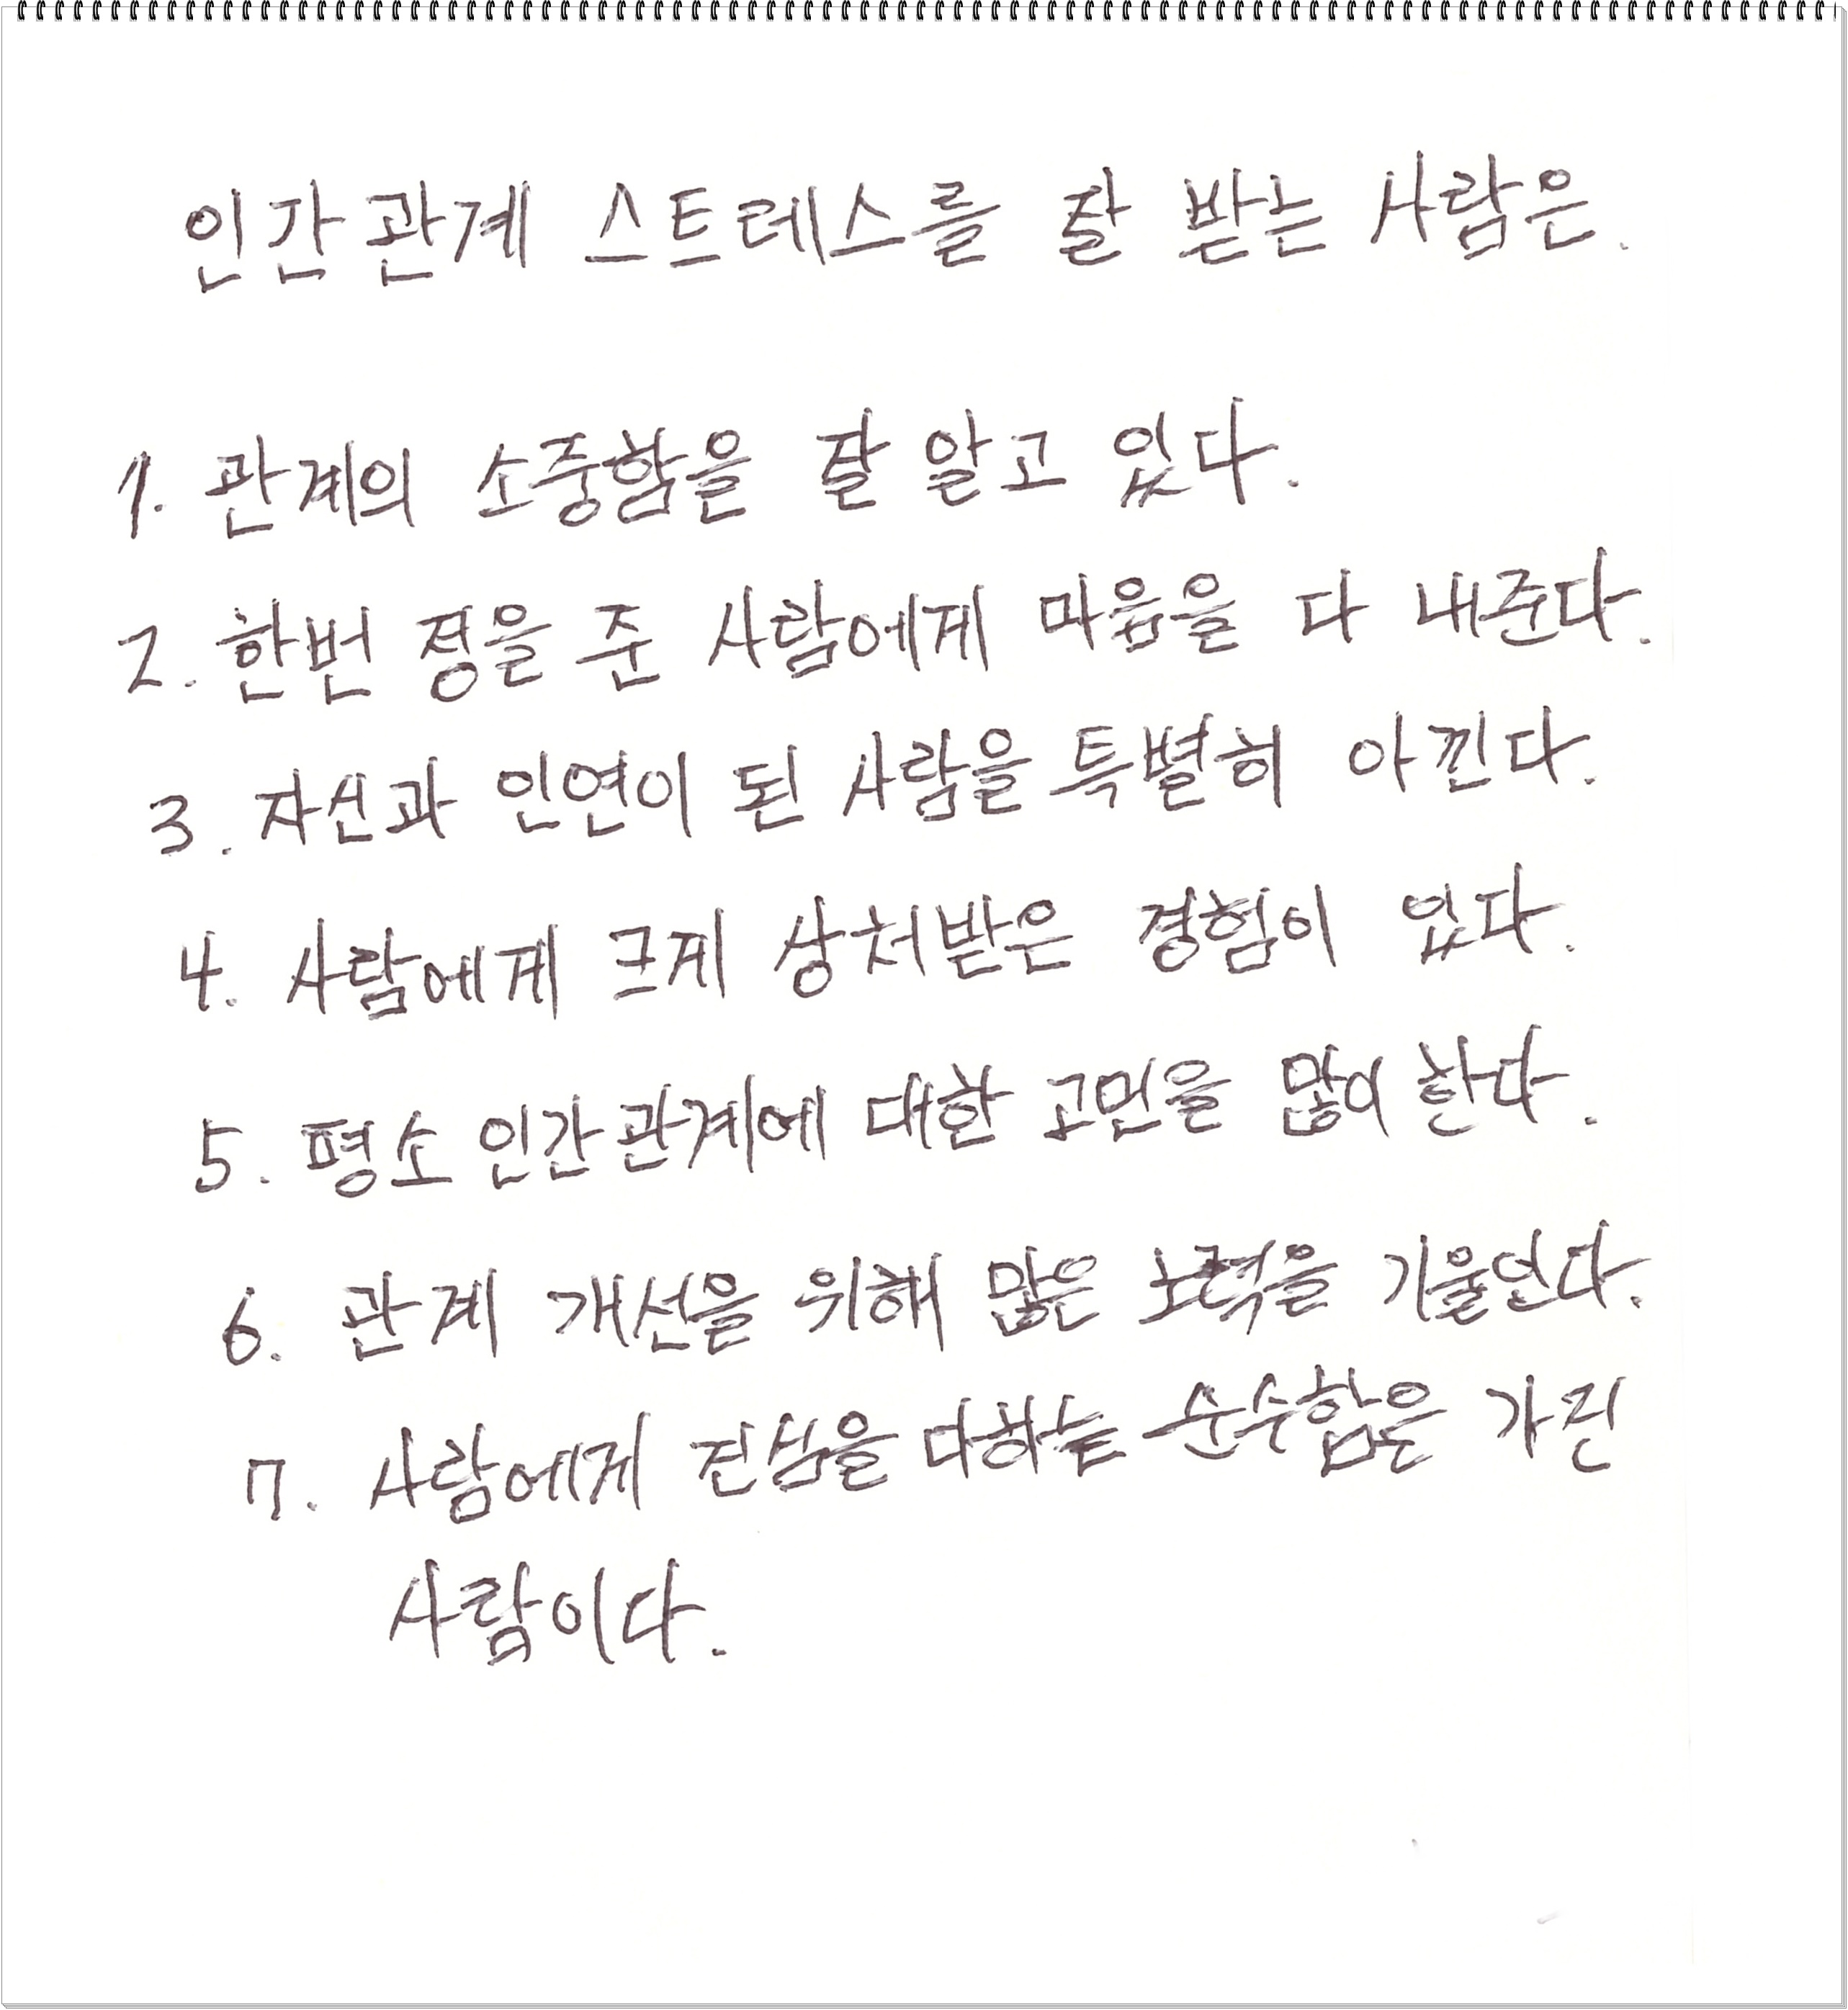 인간관계 스트레스를 잘 받는 사람은.
1. 관계의 소중함을 잘 알고 있다.
2. 한번 정을 준 사람에게 마음을 다 내준다.
3. 자신과 인연이 된 사람을 특별히 아낀다.
4. 사람에게 크게 상처받은 경험이 있다.
5. 평소 인간관계에 대한 고민을 많이 한다.
6. 관계 개선을 위해 많은 노력을 기울인다.
7. 사람에게 진심을 다하는 순수함은 가진
사람이다.